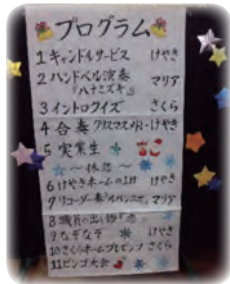 プログラム
1 キャンドルサービス けやき
2 ハンドベル演奏 マリア
『ハナミズキ』
3 イントロクイズ さくら
4 合奏 クリスマスメドレー けやき
5 実業生
～休憩～
6 けやきホームの1日 けやき
7 リコーダー奏 マリア
8 職員の出し物『恋』
9 なぞなぞ けやき
10 さくらホームプレゼンツ さくら
11 ビンゴ大会